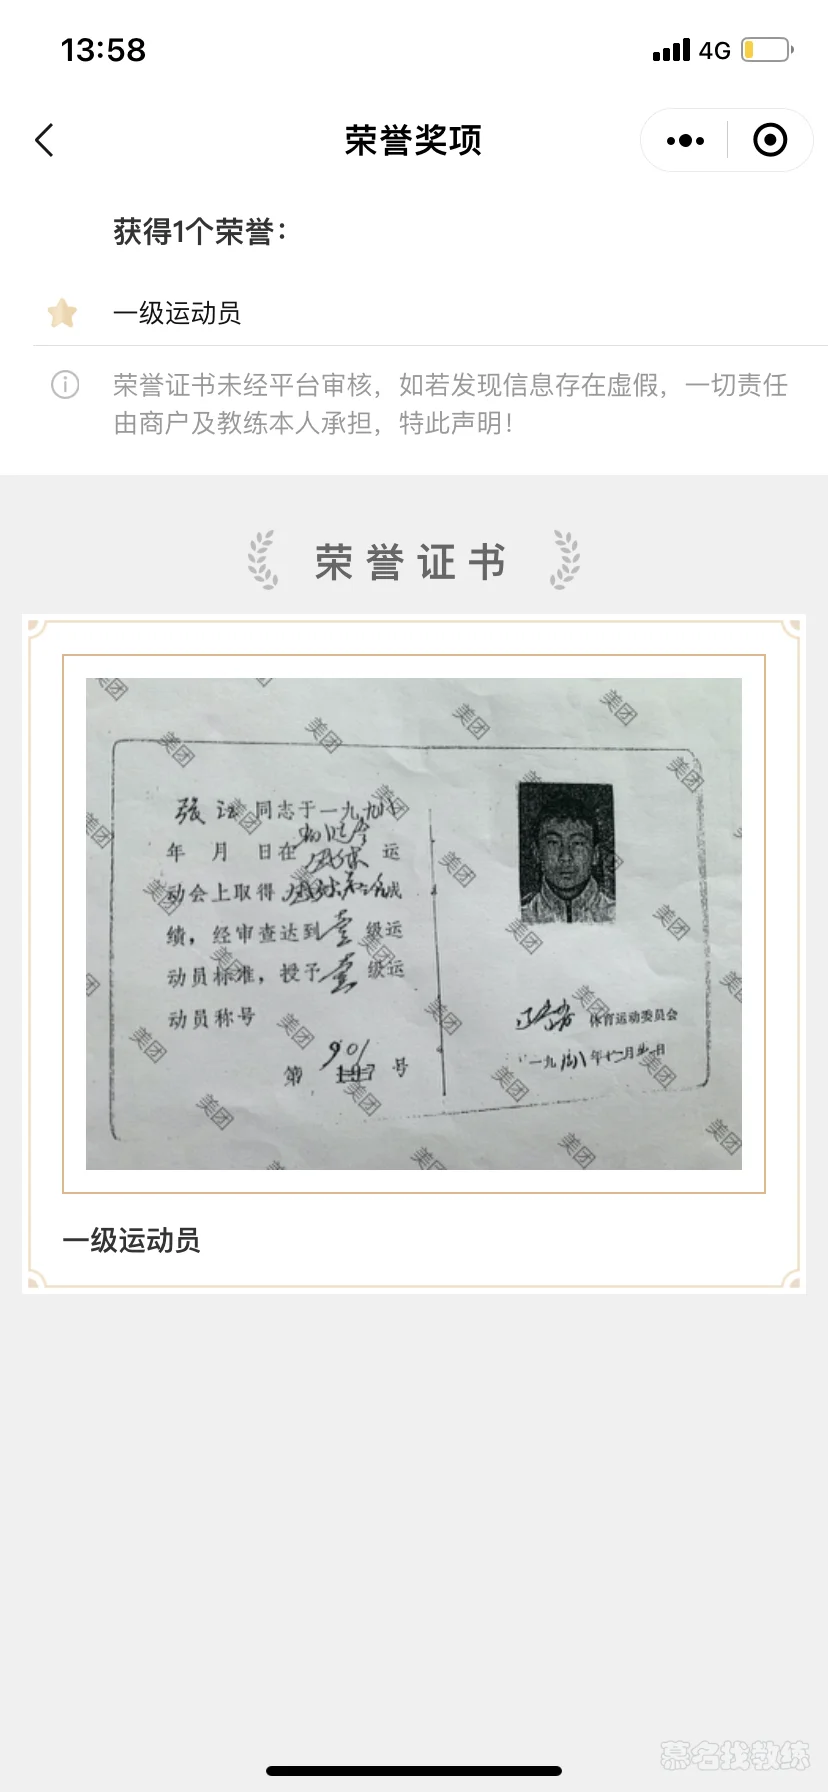 13:58
4G
荣誉奖项
获得1个荣誉：
一级运动员
荣誉证书未经平台审核，如若发现信息存在虚假，一切责任
由商户及教练本人承担，特此声明！
荣誉证书
张 同志于一九九八
年 月 日在 运
动会上取得 成
绩，经审查达到壹级运
动员标准，授予壹级运
动员称号
第 901 号
体育运动委员会
一九 八年十二月 日
美团
一级运动员
慕名找教练